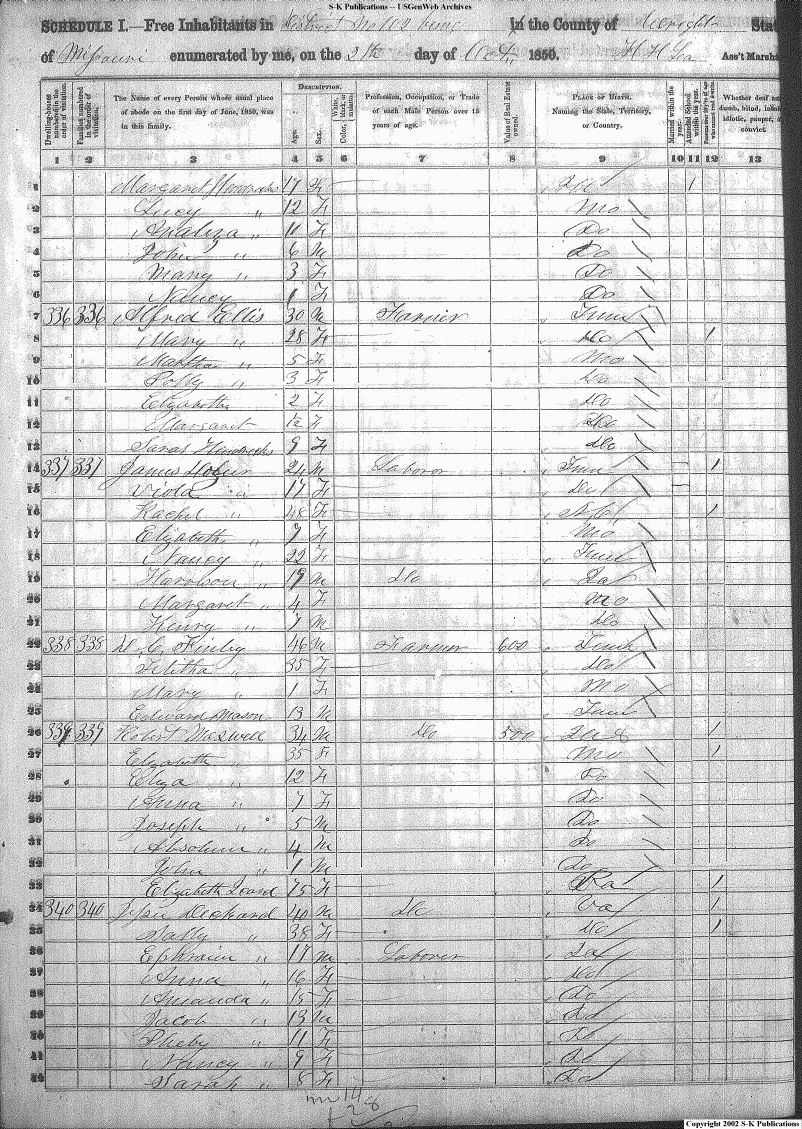 S-K Publications -- USGenWeb Archives
SCHEDULE I.—Free Inhabitants in District No 102 being in the County of Wright State
of Missouri enumerated by me, on the 2th day of Oct, 1850. Ass't Marshal
Dwelling-houses numbered in the order of visitation.
Families numbered in the order of visitation.
The Name of every Person whose usual place of abode on the first day of June, 1850, was in this family.
DESCRIPTION.
Age.
Sex.
Color, White, black, or mulatto.
Profession, Occupation, or Trade of each Male Person over 15 years of age.
Value of Real Estate owned.
PLACE OF BIRTH. Naming the State, Territory, or Country.
Married within the year.
Attended School within the year.
Whether deaf and dumb, blind, insane, idiotic, pauper, or convict.
1 2 3 4 5 6 7 8 9 10 11 12 13
1 Margaret Hendricks 17 F 1
2 Lucy " 12 F Mo
3 Analiza " 11 F Do
4 John " 6 M Do
5 Mary " 3 F Do
6 Nancy 1 F Do
7 336 336 Alfred Ellis 30 M Farmer Tenn
8 Mary " 28 F Do 1
9 Martha " 5 F Mo
10 Polly " 3 F Do
11 Elizabeth 2 F Do
12 Margaret 1/2 F Do
13 Sarah Hendricks 9 F Do
14 337 337 James 24 M Labore Tenn 1
15 Viola " 17 F Do
16 Rachel " 48 F N.C. 1
17 Elizabeth " 7 F Mo
18 Nancy " 22 F Tenn
19 Harrison " 19 M Do
20 Margaret " 4 F Mo
21 Henry " 7 M Do
22 338 338 Finley 46 M Farmer 600 Tenn
23 Telitha " 35 F Do
24 Mary " 1 F Mo
25 Edward Mason 13 M Tenn
26 339 339 Robert Maxwell 34 M Do 500 1
27 Elizabeth " 35 F Mo 1
28 Eliza " 12 F Do
29 7 F Do
30 Joseph " 5 M Do
31 Absolum " 4 M Do
32 John " 1 M Do
33 Elizabeth 75 F 1
34 340 340 40 M Do Va 1
35 Sally " 38 F Do 1
36 Ephraim " 17 M Laborer
37 Anna " 16 F Do
38 Amanda " 15 F Do
39 Jacob " 13 M Do
40 Pheby " 11 F Do
41 Nancy " 9 F Do
42 Sarah " 8 F Do
m 14
28
Copyright 2002 S-K Publications